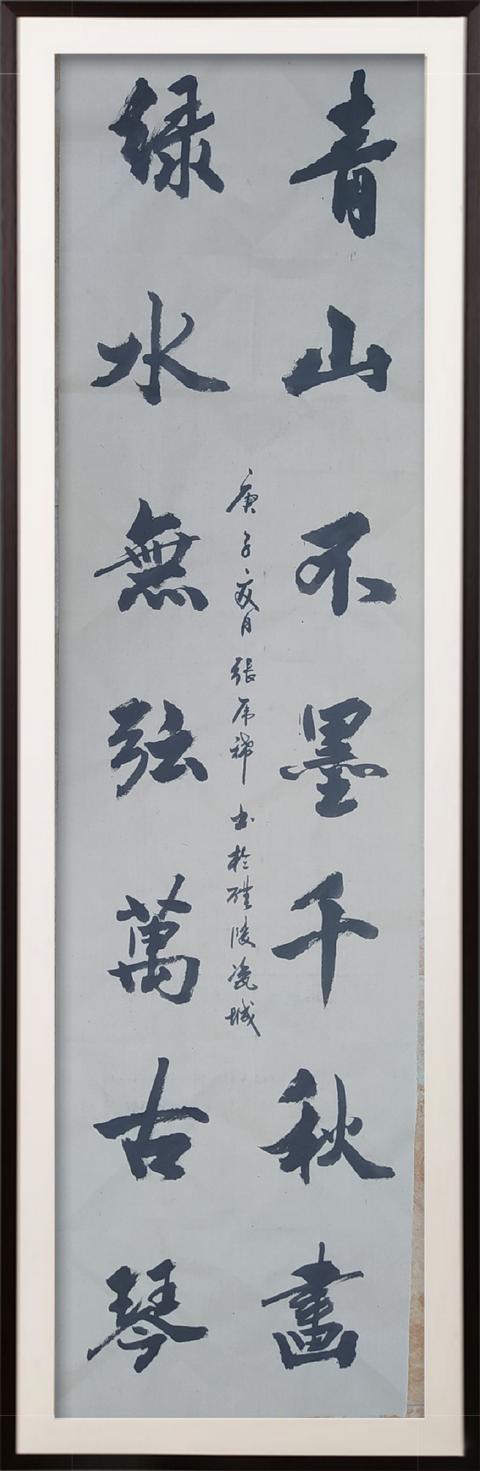 青山不墨千秋畫
庚子夏月張书於醴陵瓷城
绿水無弦萬古琴